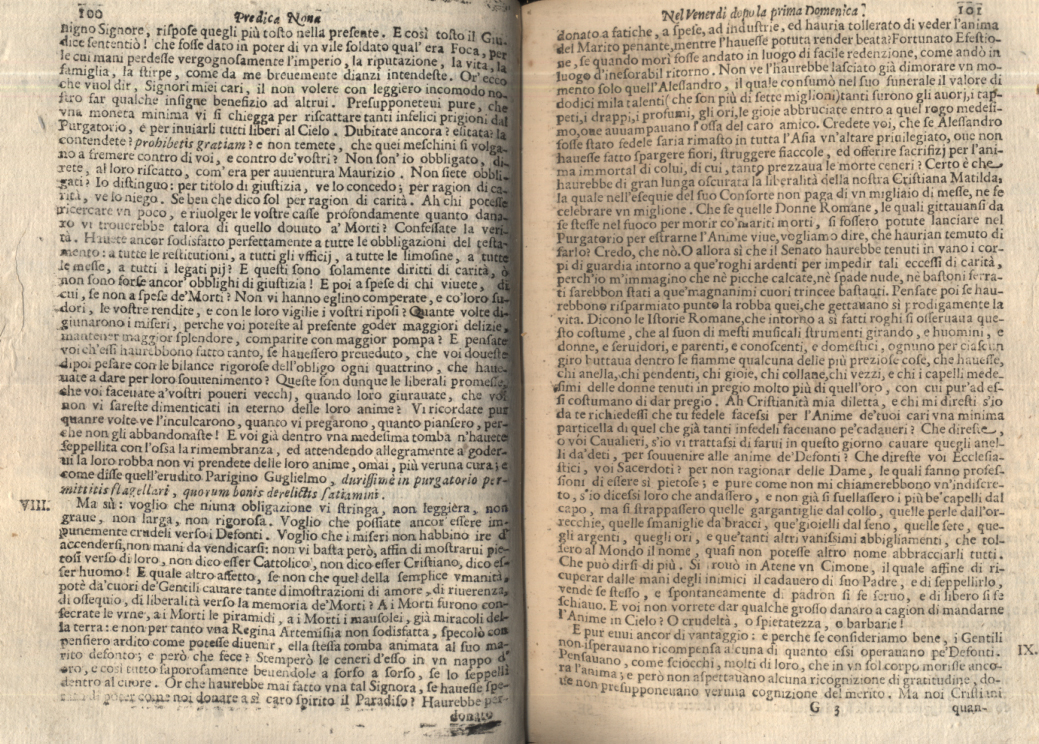 100
Predica Nona
nigno Signore, rispose quegli più tosto nella presente. E così tosto il Giu-
dice sentenziò! che fosse dato in poter di vn vile soldato qual' era Foca, per
le cui mani perdesse vergognosamente l'imperio, la riputazione, la vita, la
famiglia, la stirpe, come da me breuemente dianzi intendeste. Or' ecco
che vuol dir, Signori miei cari, il non volere con leggiero incomodo no-
stro far qualche insigne benefizio ad altrui. Presupponeteui pure, che
vna moneta minima vi si chiegga per riscattare tanti infelici prigioni dal
Purgatorio, e per inuiarli tutti liberi al Cielo. Dubitate ancora? esitate? la
contendete? prohibetis gratiam? e non temete, che quei meschini si volga-
no a fremere contro di voi, e contro de'vostri? Non son' io obbligato, di-
rete, al loro riscatto, com' era per auuentura Maurizio. Non siete obbli-
gati? Io distinguo: per titolo di giustizia, ve lo concedo; per ragion di ca-
rità, ve lo niego. Se ben che dico sol per ragion di carità. Ah chi potesse
ricercare vn poco, e riuolger le vostre casse profondamente quanto dana-
ro vi trouerebbe talora di quello douuto a' Morti? Confessate la veri-
tà. Hauete ancor sodisfatto perfettamente a tutte le obbligazioni del testa-
mento: a tutte le restituzioni, a tutti gli vfficij, a tutte le limosine, a tutte
le messe, a tutti i legati pij? E questi sono solamente diritti di carità, ò
non sono forse ancor' obblighi di giustizia! E poi a spese di chi viuete, di
cui, se non a spese de'Morti? Non vi hanno eglino comperate, e co'loro su-
dori, le vostre rendite, e con le loro vigilie i vostri riposi? Quante volte di-
giunarono i miseri, perche voi poteste al presente goder maggiori delizie,
mantener maggior splendore, comparire con maggior pompa? E pensate
voi ch'essi haurebbono fatto tanto, se hauessero preueduto, che voi doueste
dipoi pesare con le bilance rigorose dell'obligo ogni quattrino, che haue-
uate a dare per loro souuenimento? Queste son dunque le liberali promesse,
che voi faceuate a'vostri poueri vecchj, quando loro giurauate, che voi
non vi sareste dimenticati in eterno delle loro anime? Vi ricordate pur
quante volte ve l'inculcarono, quanto vi pregarono, quanto piansero, per-
che non gli abbandonaste! E voi già dentro vna medesima tomba n'hauete
seppellita con l'ossa la rimembranza, ed attendendo allegramente a goder-
ui la loro robba non vi prendete delle loro anime, omai, più veruna cura; e
come disse quell'erudito Parigino Guglielmo, durissimè in purgatorio per-
mittitis flagellari, quorum bonis derelictis satiamini.
VIII. Ma sù: voglio che niuna obligazione vi stringa, non leggiera, non
graue, non larga, non rigorosa. Voglio che possiate ancor' essere im-
punemente crudeli verso i Defonti. Voglio che i miseri non habbino ire d'
accendersi, non mani da vendicarsi: non vi basta però, affin di mostrarui pie-
tosi verso di loro, non dico esser Cattolico, non dico esser Cristiano, dico es-
ser huomo! E quale altro affetto, se non che quel della semplice vmanità,
potè da'cuori de' Gentili cauare tante dimostrazioni di amore, di riuerenza,
di ossequio, di liberalità verso la memoria de'Morti? A i Morti furono con-
secrate le vrne, a i Morti le piramidi, a i Morti i mausolei, già miracoli del-
la terra: e non per tanto vna Regina Artemisia non sodisfatta, specolò con
pensiero ardito come potesse diuenir, ella stessa tomba animata al suo ma-
rito defonto; e però che fece? Stemperò le ceneri d'esso in vn nappo d'
oro, e così tutto saporosamente beuendole a sorso a sorso, se lo seppellì
dentro al cuore. Or che haurebbe mai fatto vna tal Signora, se hauesse spe-
rato di poter come noi donare a sì caro spirito il Paradiso? Haurebbe per-
donato
Nel Venerdì dopo la prima Domenica?
101
donato a fatiche, a spese, ad industrie, ed hauria tollerato di veder l'anima
del Marito penante, mentre l'hauesse potuta render beata? Fortunato Efestio-
ne, se quando morì fosse andato in luogo di facile redenzione, come andò in
luogo d'inesorabil ritorno. Non ve l'haurebbe lasciato già dimorare vn mo-
mento solo quell'Alessandro, il quale consumò nel suo funerale il valore di
dodici mila talenti (che son più di sette miglioni) tanti furono gli auorj, i tap-
peti, i drappi, i profumi, gli ori, le gioie abbruciate entro a quel rogo medesi-
mo, oue auuampauano l'ossa del caro amico. Credete voi, che se Alessandro
fosse stato fedele saria rimasto in tutta l'Asia vn'altare priuilegiato, oue non
hauesse fatto spargere fiori, struggere fiaccole, ed offerire sacrifizj per l'ani-
ma immortal di colui, di cui, tanto prezzaua le morte ceneri? Certo è che
haurebbe di gran lunga oscurata la liberalità della nostra Cristiana Matilda,
la quale nell'esequie del suo Consorte non paga di vn migliaio di messe, ne fe
celebrare vn miglione. Che se quelle Donne Romane, le quali gittauansi da
se stesse nel fuoco per morir co'mariti morti, si fossero potute lanciare nel
Purgatorio per estrarne l'Anime viue, vogliamo dire, che haurian temuto di
farlo? Credo, che nò. O allora sì che il Senato haurebbe tenuti in vano i cor-
pi di guardia intorno a que'roghi ardenti per impedir tali eccessi di carità,
perch'io m'immagino che nè picche calcate, nè spade nude, nè bastoni ferra-
ti sarebbon stati a que'magnanimi cuori trincee bastanti. Pensate poi se hau-
rebbono risparmiato punto la robba quei, che gettauano sì prodigamente la
vita. Dicono le Istorie Romane, che intorno a sì fatti roghi si osseruaua que-
sto costume, che al suon di mesti musicali strumenti girando, e huomini, e
donne, e seruidori, e parenti, e conoscenti, e domestici, ognuno per ciascun
giro buttaua dentro le fiamme qualcuna delle più preziose cose, che hauesse,
chi anella, chi pendenti, chi gioie, chi collane, chi vezzi, e chi i capelli mede-
simi delle donne tenuti in pregio molto più di quell'oro, con cui pur'ad es-
si costumano di dar pregio. Ah Cristianità mia diletta, e chi mi diresti s'io
da te richiedessi che tu fedele facessi per l'Anime de'tuoi cari vna minima
particella di quel che già tanti infedeli faceuano pe'cadaueri? Che direste,
o voi Caualieri, s'io vi trattassi di farui in questo giorno cauare quegli anel-
li da'deti, per souuenire alle anime de'Defonti? Che direste voi Ecclesia-
stici, voi Sacerdoti? per non ragionar delle Dame, le quali fanno profes-
sioni di essere sì pietose; e pure come non mi chiamerebbono vn'indiscre-
to, s'io dicessi loro che andassero, e non già si suellassero i più be'capelli dal
capo, ma si strappassero quelle gargantiglie dal collo, quelle perle dall'or-
recchie, quelle smaniglie da'bracci, que'gioielli dal seno, quelle sete, que-
gli argenti, quegli ori, e que'tanti altri vanissimi abbigliamenti, che tol-
sero al Mondo il nome, quasi non potesse altro nome abbracciarli tutti.
Che può dirsi di più. Si trouò in Atene vn Cimone, il quale affine di ri-
cuperar dalle mani degli inimici il cadauero di suo Padre, e di seppellirlo,
vendè se stesso, e spontaneamente di padron si fe seruo, e di libero si fe
schiauo. E voi non vorrete dar qualche grosso danaro a cagion di mandarne
l'Anime in Cielo? O crudeltà, o spietatezza, o barbarie!
E pur euui ancor di vantaggio: e perche se consideriamo bene, i Gentili IX.
non isperauano ricompensa alcuna di quanto essi operauano pe'Defonti.
Pensauano, come sciocchi, molti di loro, che in vn sol corpo morisse anco-
ra l'anima; e però non aspettauano alcuna ricognizione di gratitudine, do-
ue non presupponeuano veruna cognizione del merito. Ma noi Cristiani
G 3
quan-